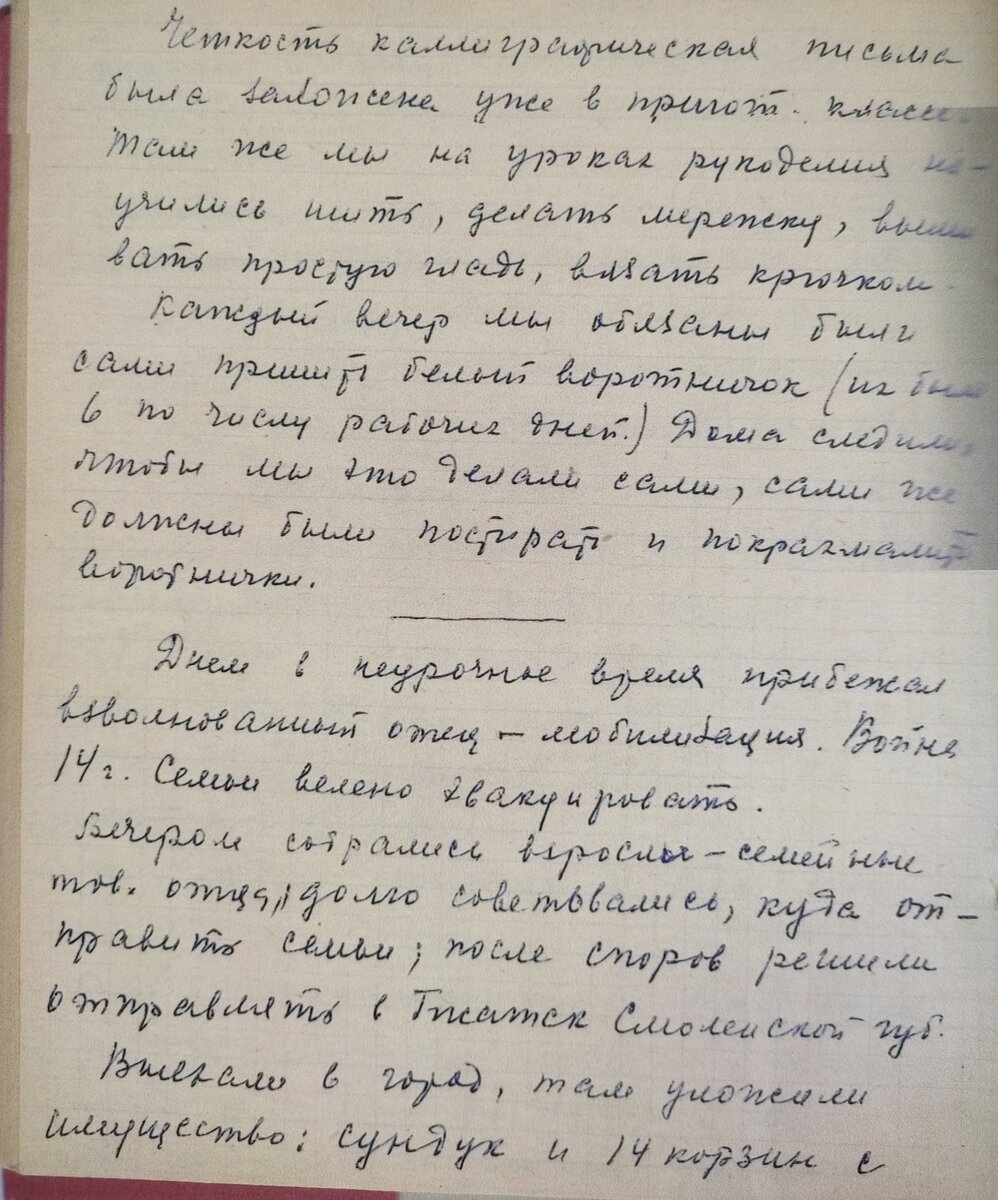 Четкость каллиграфическая письма
была заложена уже в пригот. классе.
Там же мы на уроках рукоделия на-
учились шить, делать мережку, выши
вать простую гладь, вязать крючком.
Каждый вечер мы обязаны были
сами пришить белый воротничок (их было
6 по числу рабочих дней.) Дома следили,
чтобы мы это делали сами, сами же
должны были постирать и покрахмалить
воротнички.
Днем в неурочное время прибежал
взволнованный отец – мобилизация. Война
14 г. Семьи велено эвакуировать.
Вечером собрались взрослые – семейные
тов. отца, долго советовались, куда от-
править семьи; после споров решили
отправлять в Гжатск Смоленской губ.
Выехали в город, там уложили
имущество: сундук и 14 корзин с